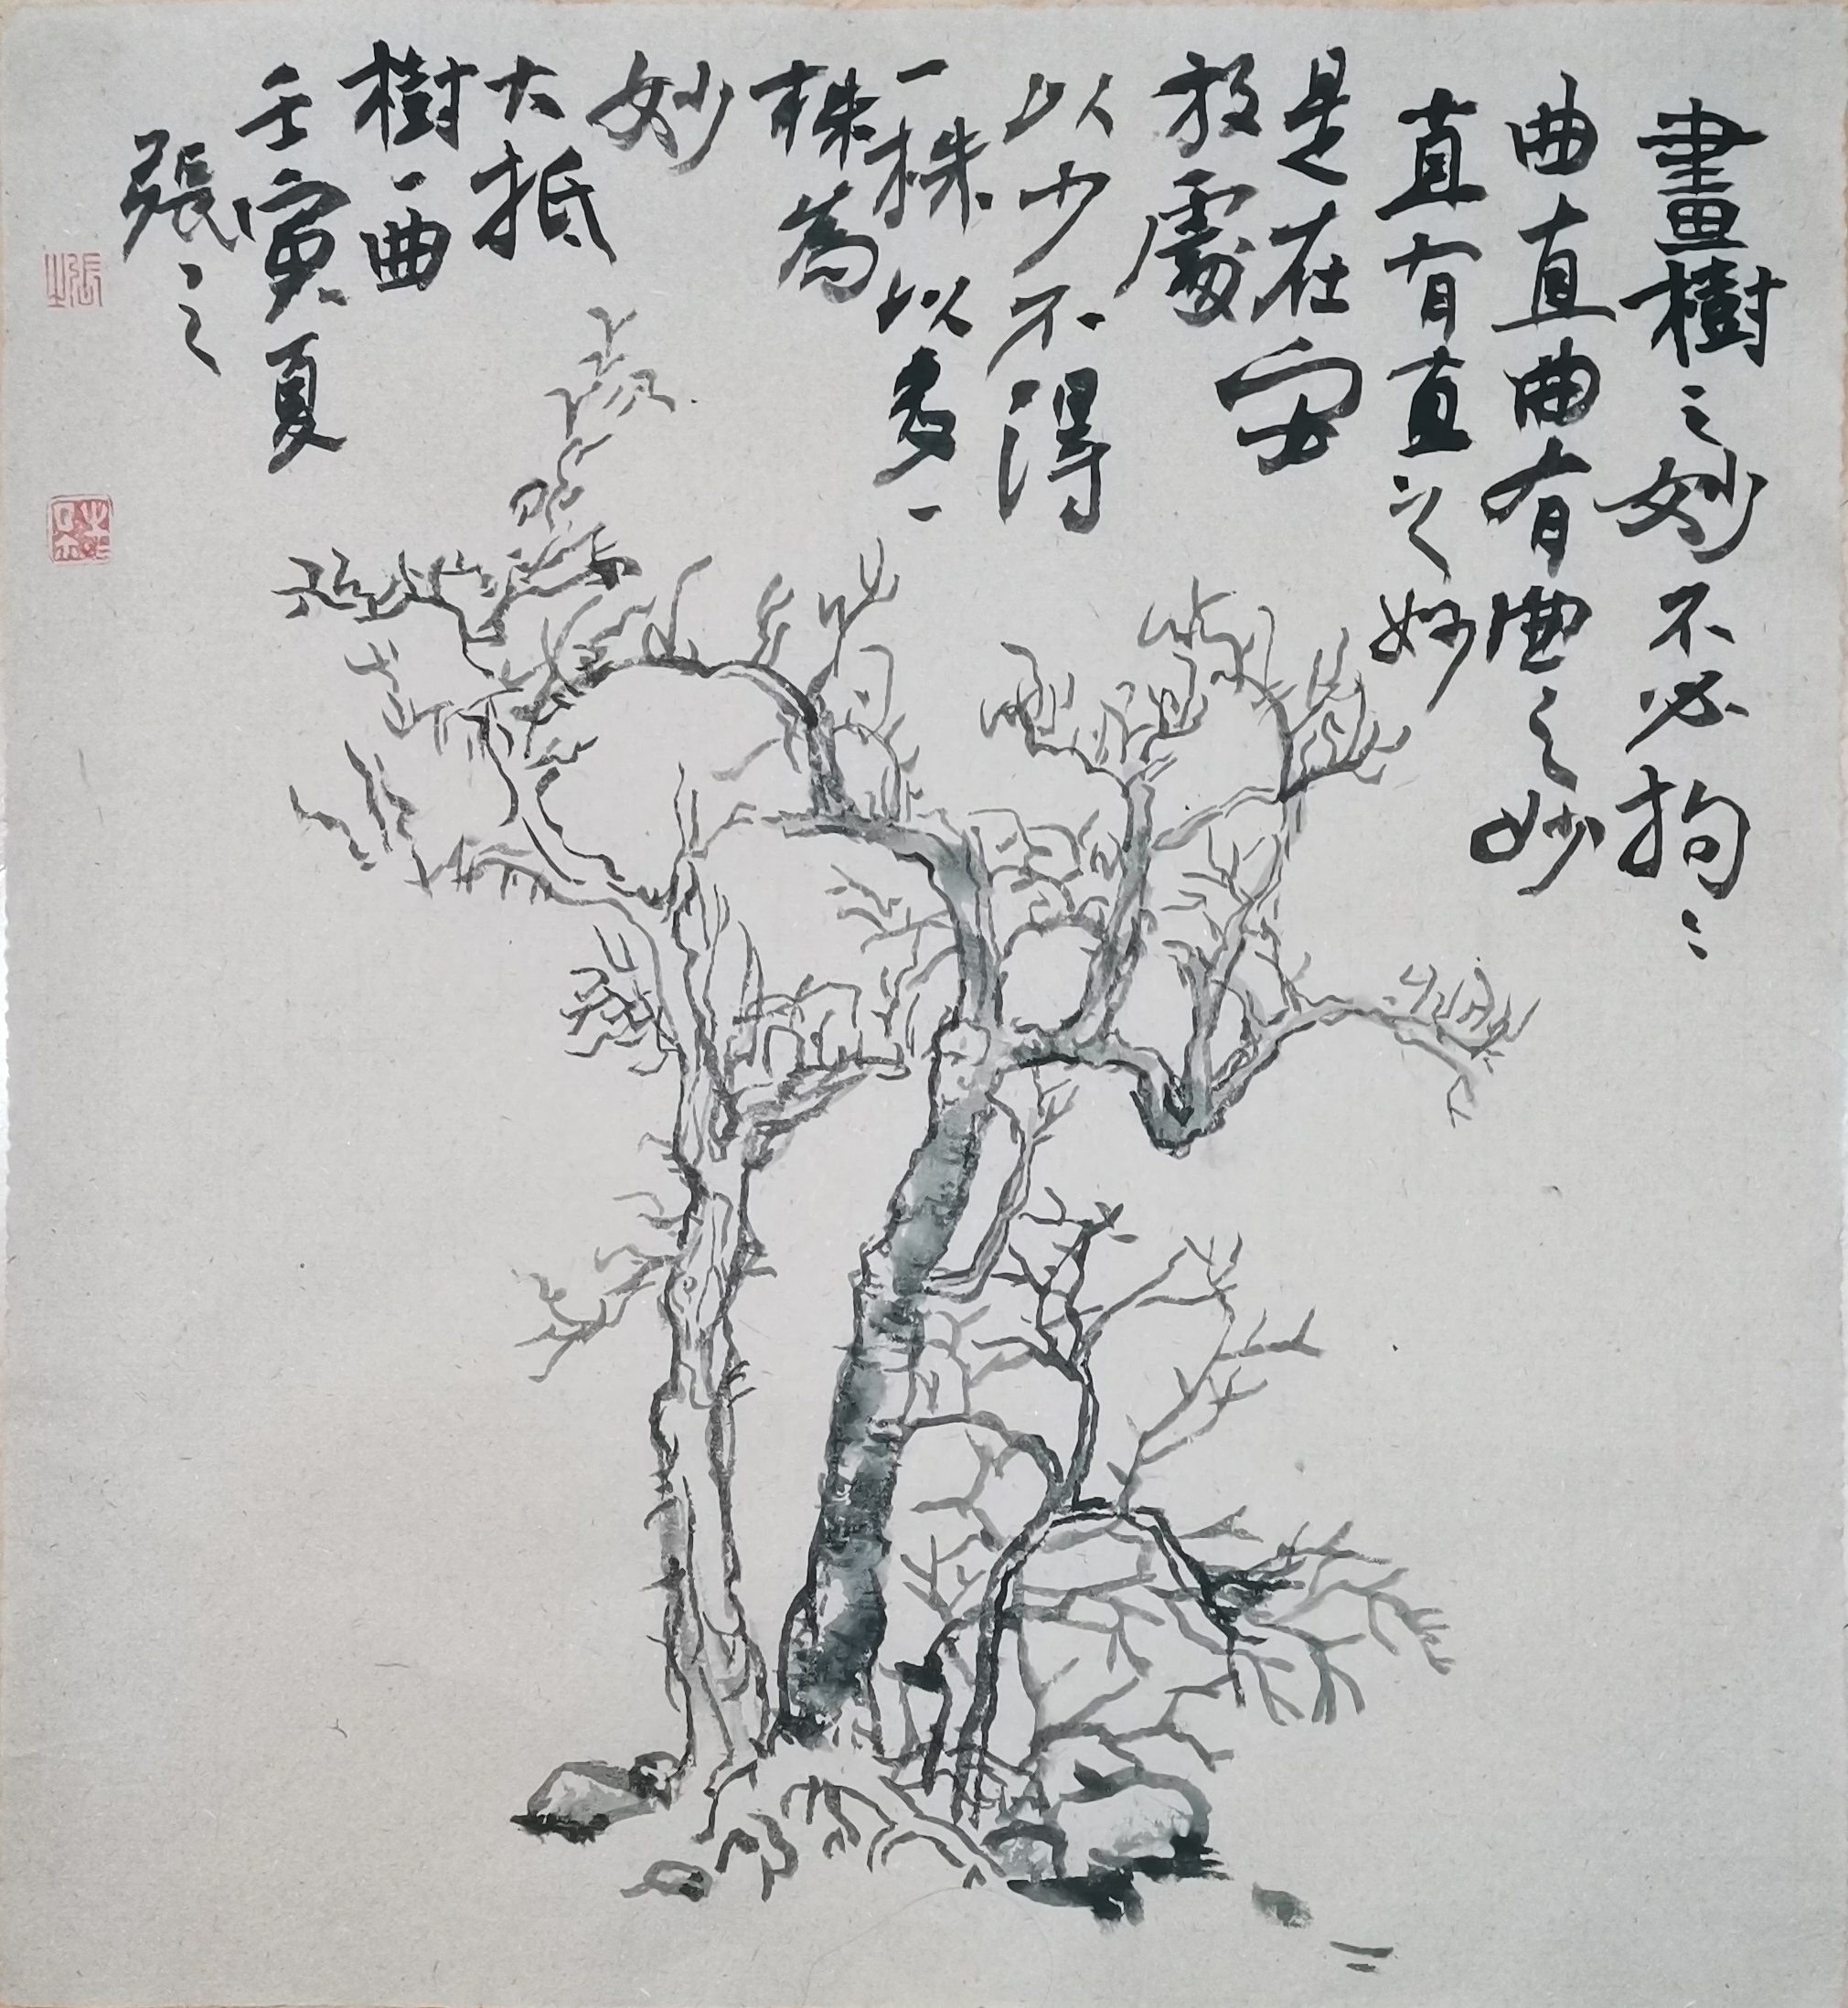 畫樹之妙不必拘〻
曲直曲有曲之妙
直有直之妙
是在安
放處
以少不得
一株以多一
株為
妙
大抵
樹一曲
壬寅夏
張之